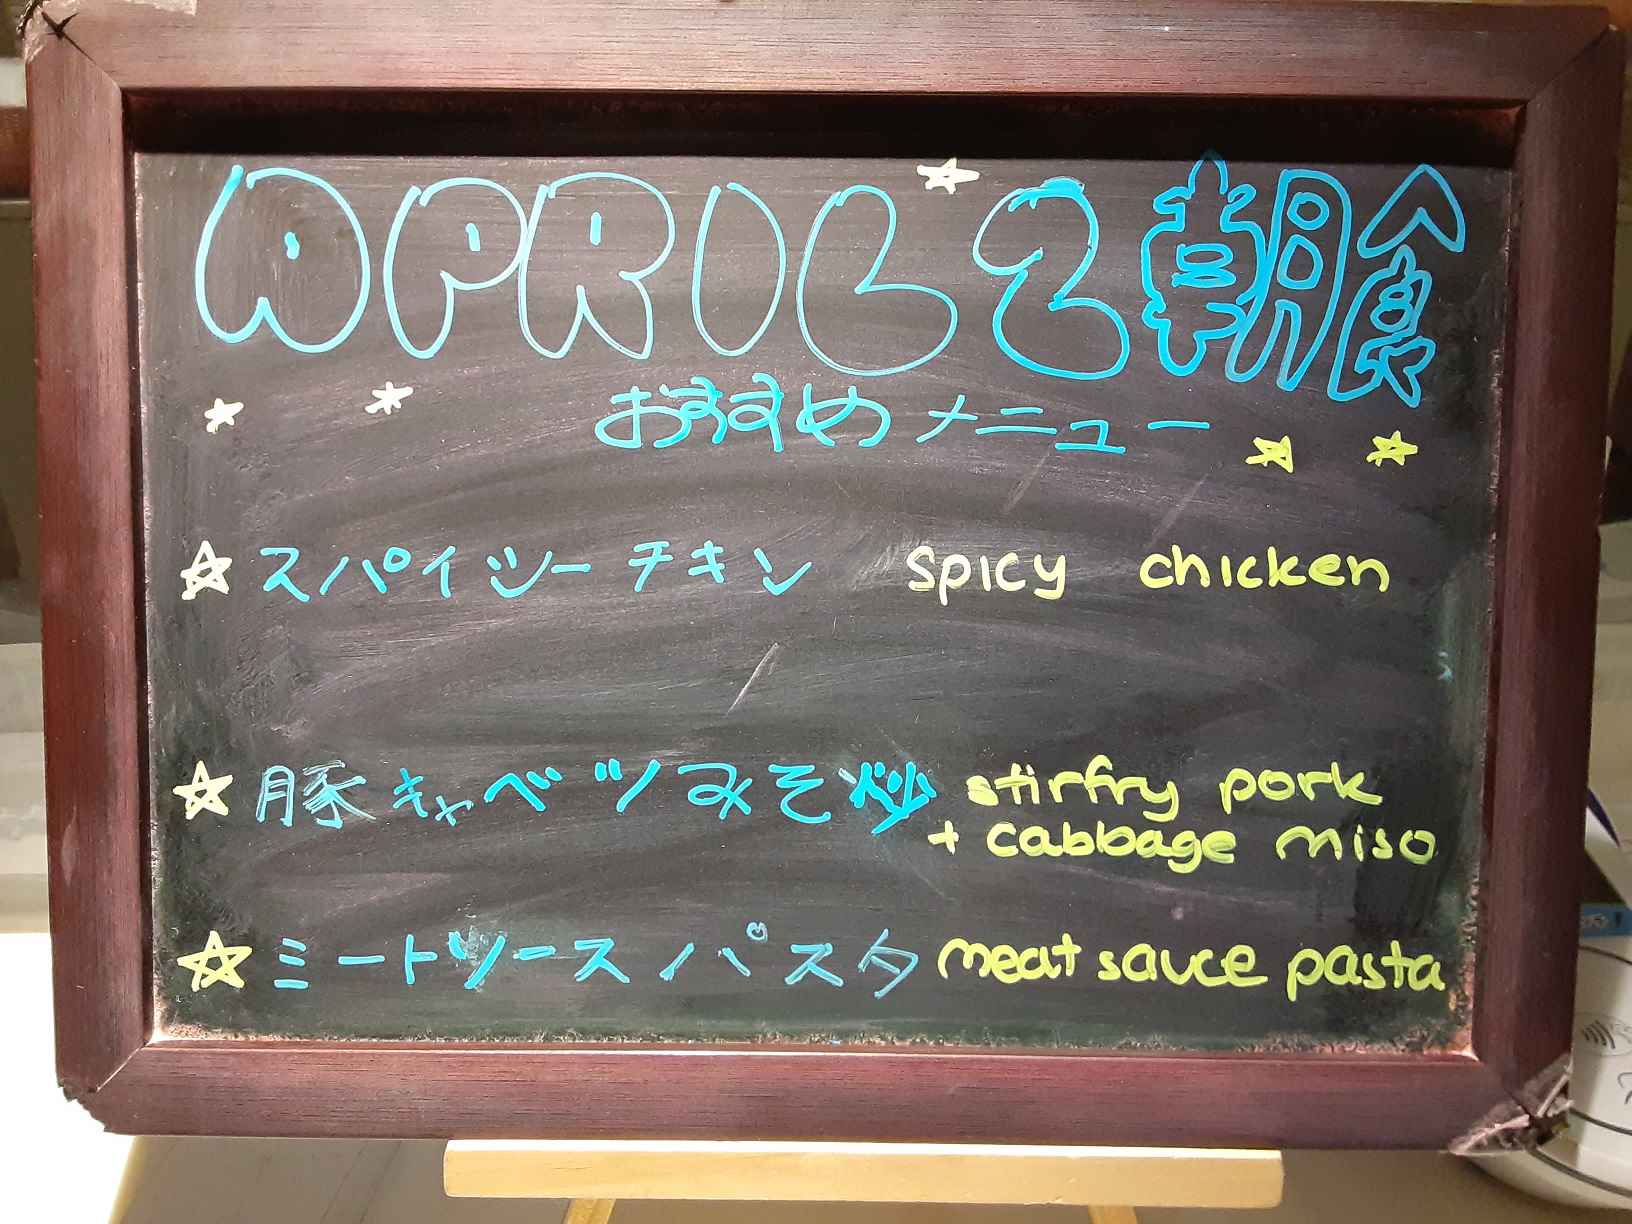 APRIL 2 朝食
おすすめメニュー
スパイシーチキン spicy chicken
豚キャベツみそ炒 stirfry pork
+ cabbage miso
ミートソースパスタ meat sauce pasta